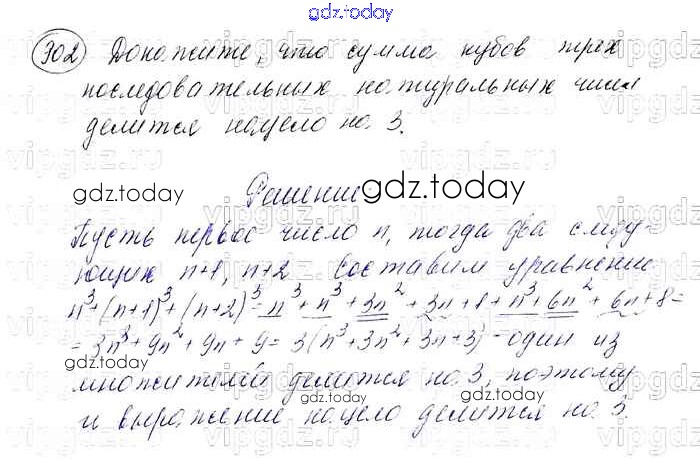 gdz.today
302 Докажите, что сумма кубов трех
последовательных натуральных чисел
делится нацело на 3.
gdz.today
Решение
gdz.today
Пусть первое число n, тогда два следу-
ющих n+1, n+2 Составим уравнение
n³+(n+1)³+(n+2)³=n³+n³+3n²+3n+1+n³+6n²+6n+8=
=3n³+9n²+9n+9=3(n³+3n²+3n+3)-один из
множителей делится на 3, поэтому
и выражение нацело делится на 3.
gdz.today
gdz.today